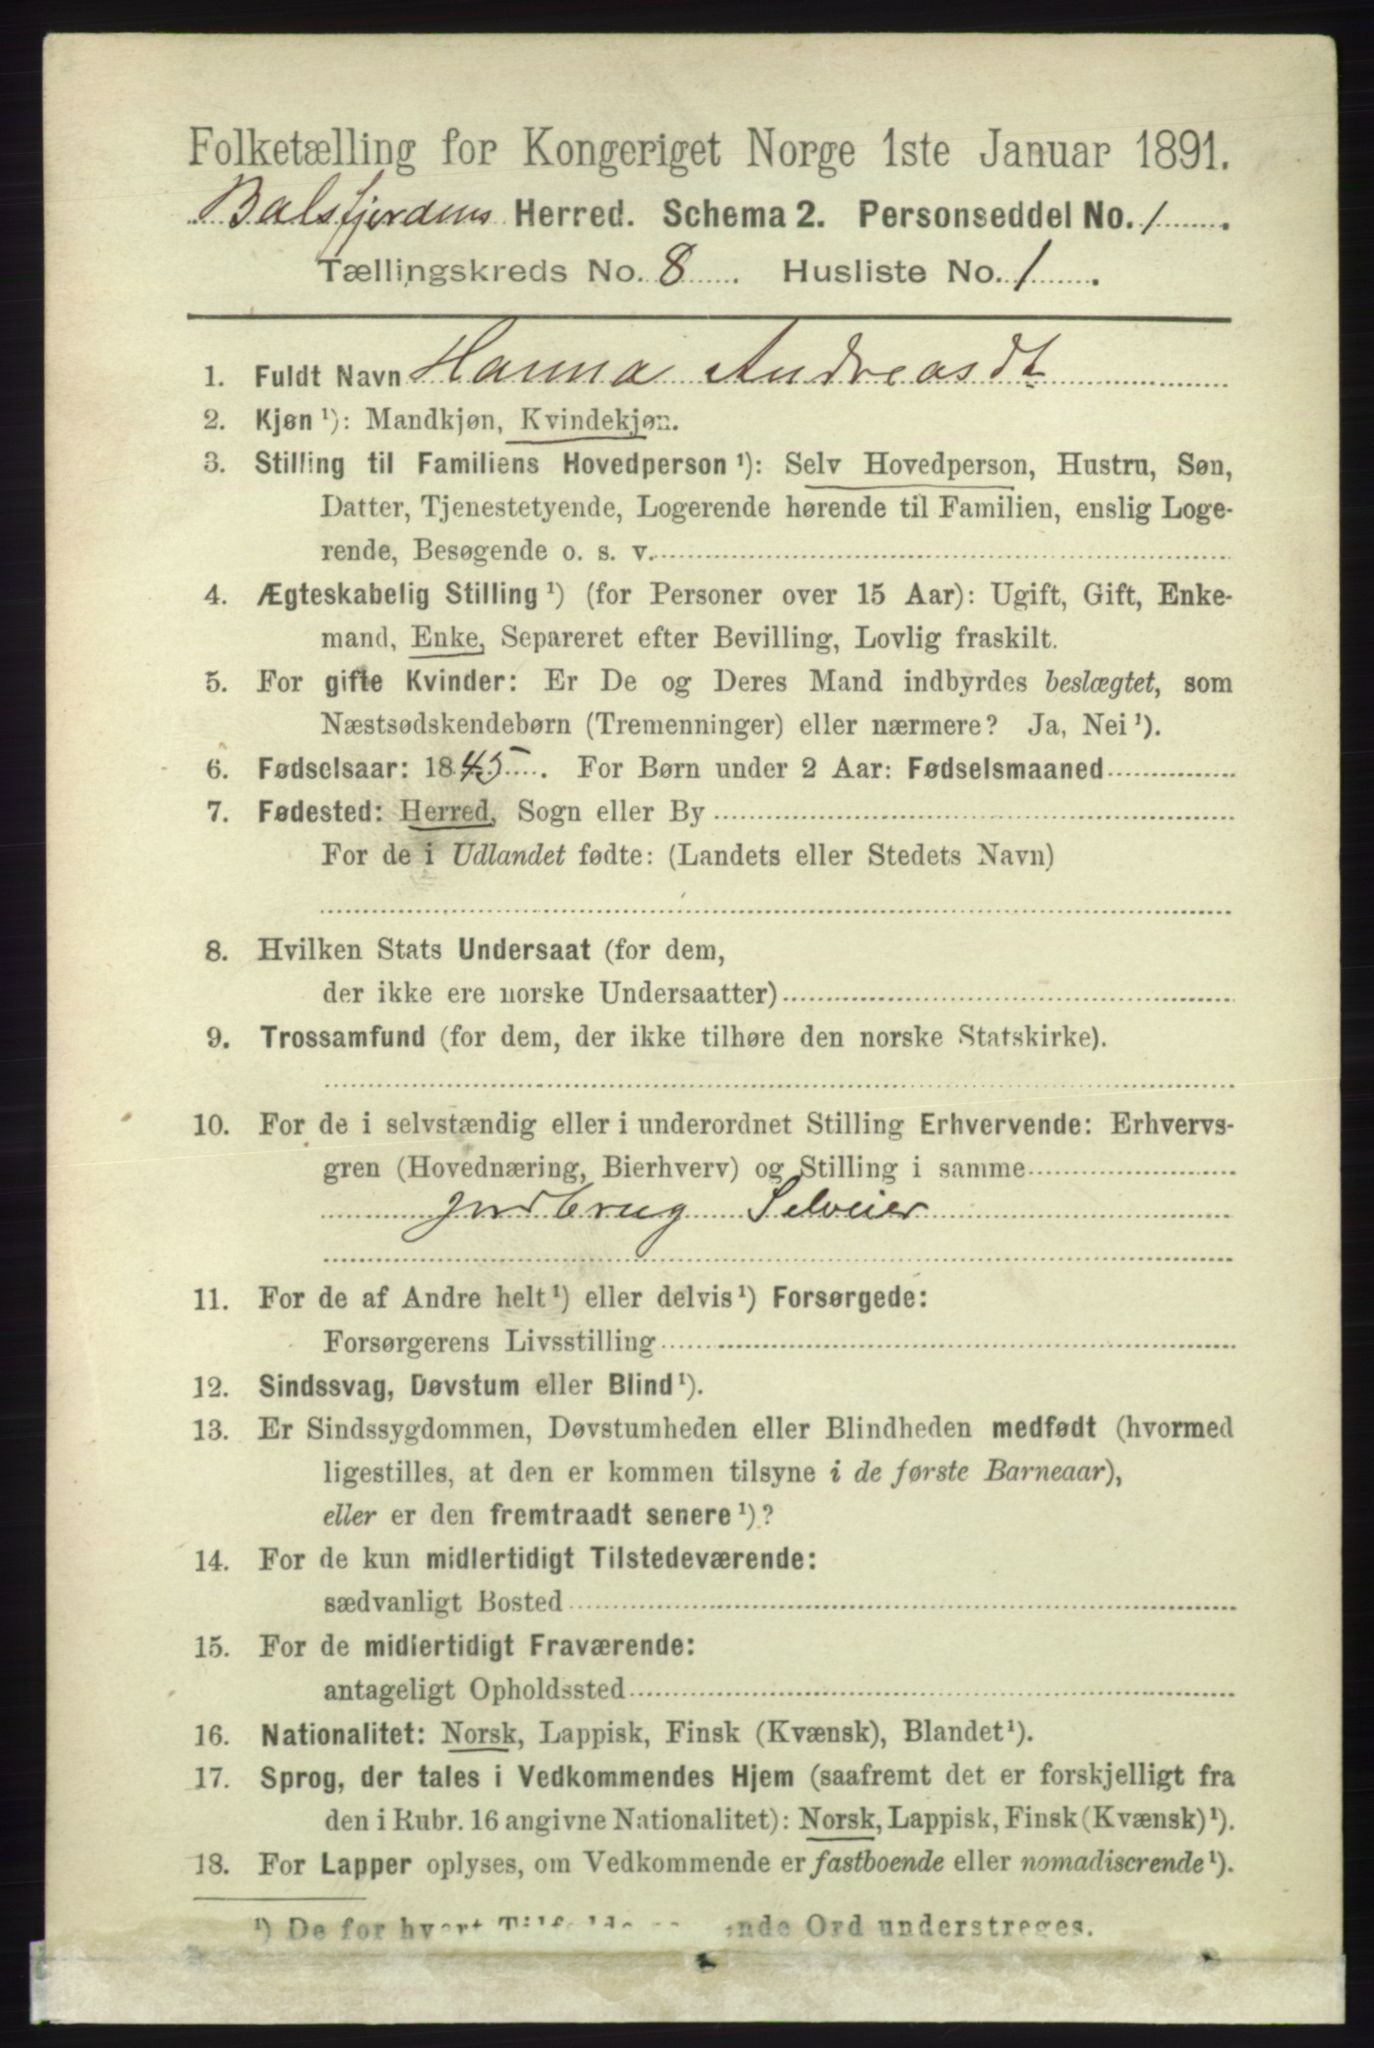 Folketælling for Kongeriget Norge 1ste Januar 1891.
Balsfjordens Herred. Schema 2. Personseddel No. 1.
Tællingskreds No. 8. Husliste No. 1.
1. Fuldt Navn Hanna Andreasdt
2. Kjøn ¹): Mandkjøn, Kvindekjøn.
3. Stilling til Familiens Hovedperson ¹): Selv Hovedperson, Hustru, Søn,
Datter, Tjenestetyende, Logerende hørende til Familien, enslig Loge-
rende, Besøgende o. s. v.
4. Ægteskabelig Stilling ¹) (for Personer over 15 Aar): Ugift, Gift, Enke-
mand, Enke, Separeret efter Bevilling, Lovlig fraskilt.
5. For gifte Kvinder: Er De og Deres Mand indbyrdes beslægtet, som
Næstsødskendebørn (Tremenninger) eller nærmere? Ja, Nei ¹).
6. Fødselsaar: 1845. For Børn under 2 Aar: Fødselsmaaned
7. Fødested: Herred, Sogn eller By
For de i Udlandet fødte: (Landets eller Stedets Navn)
8. Hvilken Stats Undersaat (for dem,
der ikke ere norske Undersaatter)
9. Trossamfund (for dem, der ikke tilhøre den norske Statskirke).
10. For de i selvstændig eller i underordnet Stilling Erhvervende: Erhvervs-
gren (Hovednæring, Bierhverv) og Stilling i samme
Jordbrug Selveier
11. For de af Andre helt ¹) eller delvis ¹) Forsørgede:
Forsørgerens Livsstilling
12. Sindssvag, Døvstum eller Blind ¹).
13. Er Sindssygdommen, Døvstumheden eller Blindheden medfødt (hvormed
ligestilles, at den er kommen tilsyne i de første Barneaar),
eller er den fremtraadt senere ¹)?
14. For de kun midlertidigt Tilstedeværende:
sædvanligt Bosted
15. For de midlertidigt Fraværende:
antageligt Opholdssted
16. Nationalitet: Norsk, Lappisk, Finsk (Kvænsk), Blandet ¹).
17. Sprog, der tales i Vedkommendes Hjem (saafremt det er forskjelligt fra
den i Rubr. 16 angivne Nationalitet): Norsk, Lappisk, Finsk (Kvænsk) ¹).
18. For Lapper oplyses, om Vedkommende er fastboende eller nomadiserende ¹).
¹) De for hvert Ord understreges.